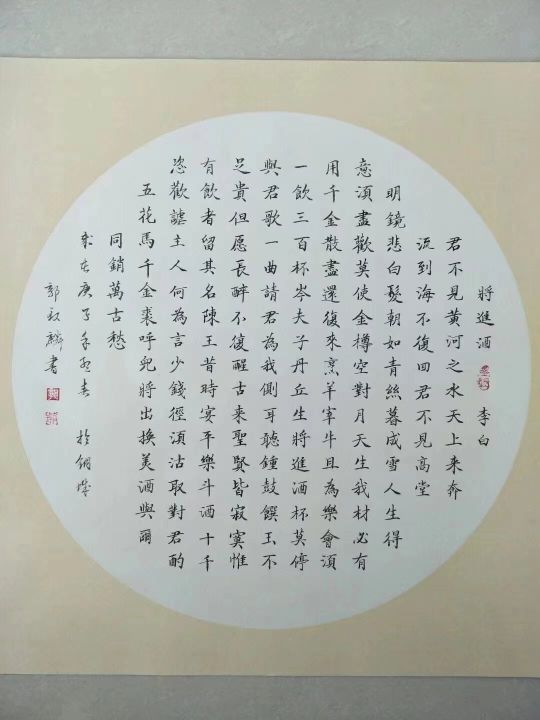 將進酒 李白
君不見黄河之水天上来奔
流到海不復回君不見高堂
明鏡悲白髮朝如青絲暮成雪人生得
意湏盡歡莫使金樽空對月天生我材必有
用千金散盡還復来烹羊宰牛且為樂會湏
一飲三百杯岑夫子丹丘生將進酒杯莫停
與君歌一曲請君為我側耳聽鍾鼓饌玉不
足貴但愿長醉不復醒古来聖賢皆寂寞惟
有飲者留其名陳王昔時宴平樂斗酒十千
恣歡謔主人何為言少錢徑湏沽取對君酌
五花馬千金裘呼兒將出換美酒與爾
同銷萬古愁
歲在庚子年 春 於
郭 麟書